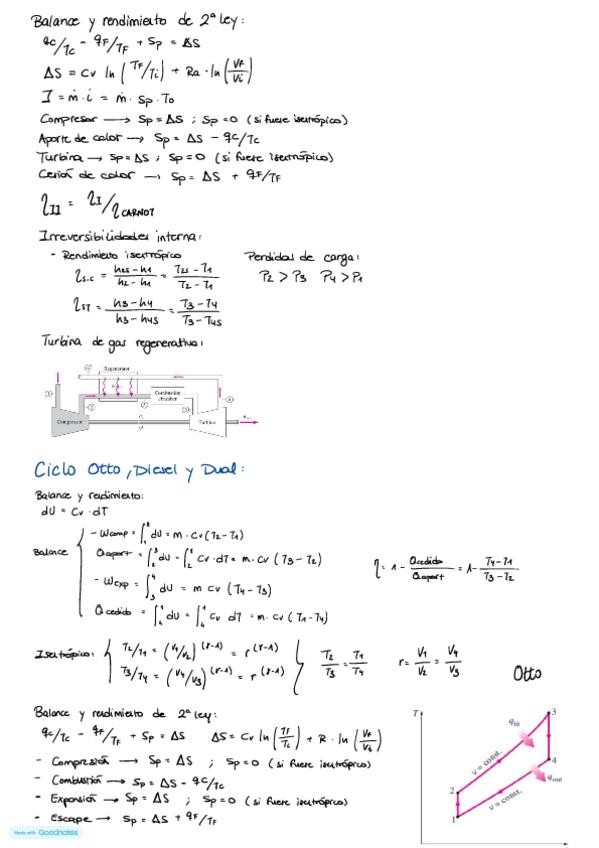 Balance y rendimiento de 2ª Ley:
qc/Tc - qF/TF + Sp = ΔS
ΔS = Cv ln (TF/Ti) + Ra · ln (VF/Vi)
I = ṁ · i = ṁ · Sp · To
Compresor → Sp = ΔS ; Sp = 0 (si fuere isentrópico)
Aporte de calor → Sp = ΔS - qc/Tc
Turbina → Sp = ΔS ; Sp = 0 (si fuere isentrópico)
Cesión de calor → Sp = ΔS + qF/TF
ηII = ηI/ηCARNOT
Irreversibilidades interna:
- Rendimiento isentrópico
Perdidas de carga:
ηs.c = (h2s - h1)/(h2 - h1) = (T2s - T1)/(T2 - T1)
P2 > P3 P4 > P1
ηsT = (h3 - h4)/(h3 - h4s) = (T3 - T4)/(T3 - T4s)
Turbina de gas regenerativa:
Regenerator
Combustion chamber
Compressor
Turbine
Ciclo Otto, Diesel y Dual:
Balance y rendimiento:
dU = Cv · dT
Balance
- Wcomp = ∫₁² dU = m · Cv (T2 - T1)
Qaport = ∫₂³ dU = ∫₂³ Cv · dT = m · Cv (T3 - T2)
- Wexp = ∫₃⁴ dU = m Cv (T4 - T3)
Qcedido = ∫₄¹ dU = ∫₄¹ Cv dT = m · Cv (T1 - T4)
η = 1 - Qcedido/Qaport = 1 - (T4 - T1)/(T3 - T2)
Isentrópico:
T2/T1 = (V1/V2)^(γ-1) = r^(γ-1)
T3/T4 = (V4/V3)^(γ-1) = r^(γ-1)
T2/T3 = T1/T4
r = V1/V2 = V4/V3
Otto
Balance y rendimiento de 2ª Ley:
qc/Tc - qF/TF + Sp = ΔS ΔS = Cv ln (TF/Ti) + R · ln (VF/Vi)
- Compresión → Sp = ΔS ; Sp = 0 (si fuere isentrópico)
- Combustión → Sp = ΔS - qc/Tc
- Expansión → Sp = ΔS ; Sp = 0 (si fuere isentrópico)
- Escape → Sp = ΔS + qF/TF
T
3
qin
v = const.
4
2
qout
v = const.
1
Made with Goodnotes